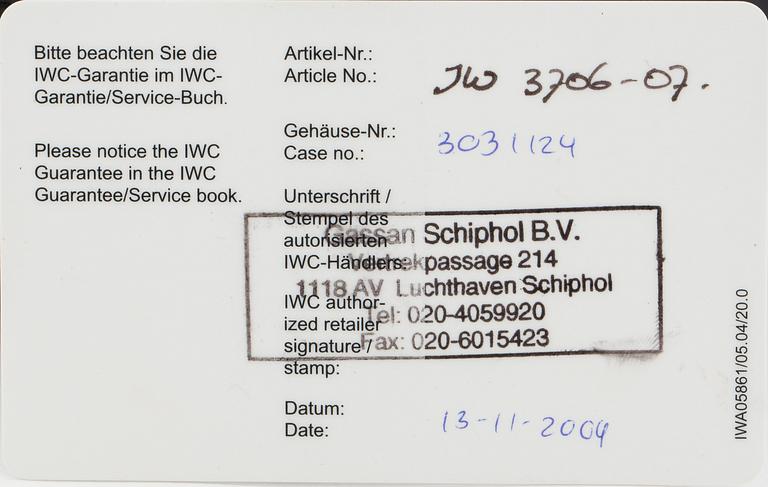 Bitte beachten Sie die
IWC-Garantie im IWC-
Garantie/Service-Buch.
Please notice the IWC
Guarantee in the IWC
Guarantee/Service book.
Artikel-Nr.:
Article No.: JW 3706-07.
Gehäuse-Nr.:
Case no.: 3031124
Unterschrift /
Stempel des
autorisierten
IWC-Händlers:
IWC author-
ized retailer
signature /
stamp:
Gassan Schiphol B.V.
Vertrekpassage 214
1118 AV Luchthaven Schiphol
Tel: 020-4059920
Fax: 020-6015423
Datum:
Date: 13-11-2004
IWA05861/05.04/20.0